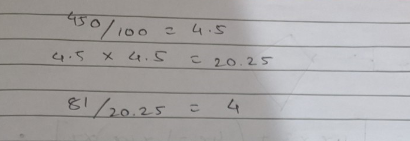 450/100 = 4.5
4.5 × 4.5 = 20.25
81/20.25 = 4